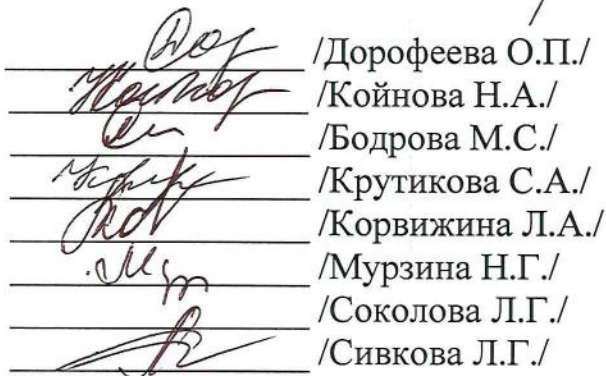 /
/Дорофеева О.П./
/Койнова Н.А./
/Бодрова М.С./
/Крутикова С.А./
/Корвижина Л.А./
/Мурзина Н.Г./
/Соколова Л.Г./
/Сивкова Л.Г./